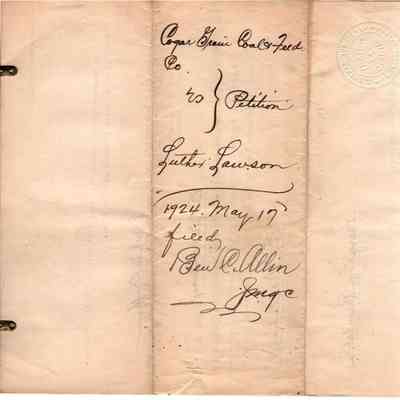 Cogar Grain Coal & Feed
Co.
vs } Petition
Luther Lawson
1924. May 17
filed
Ben C. Allin